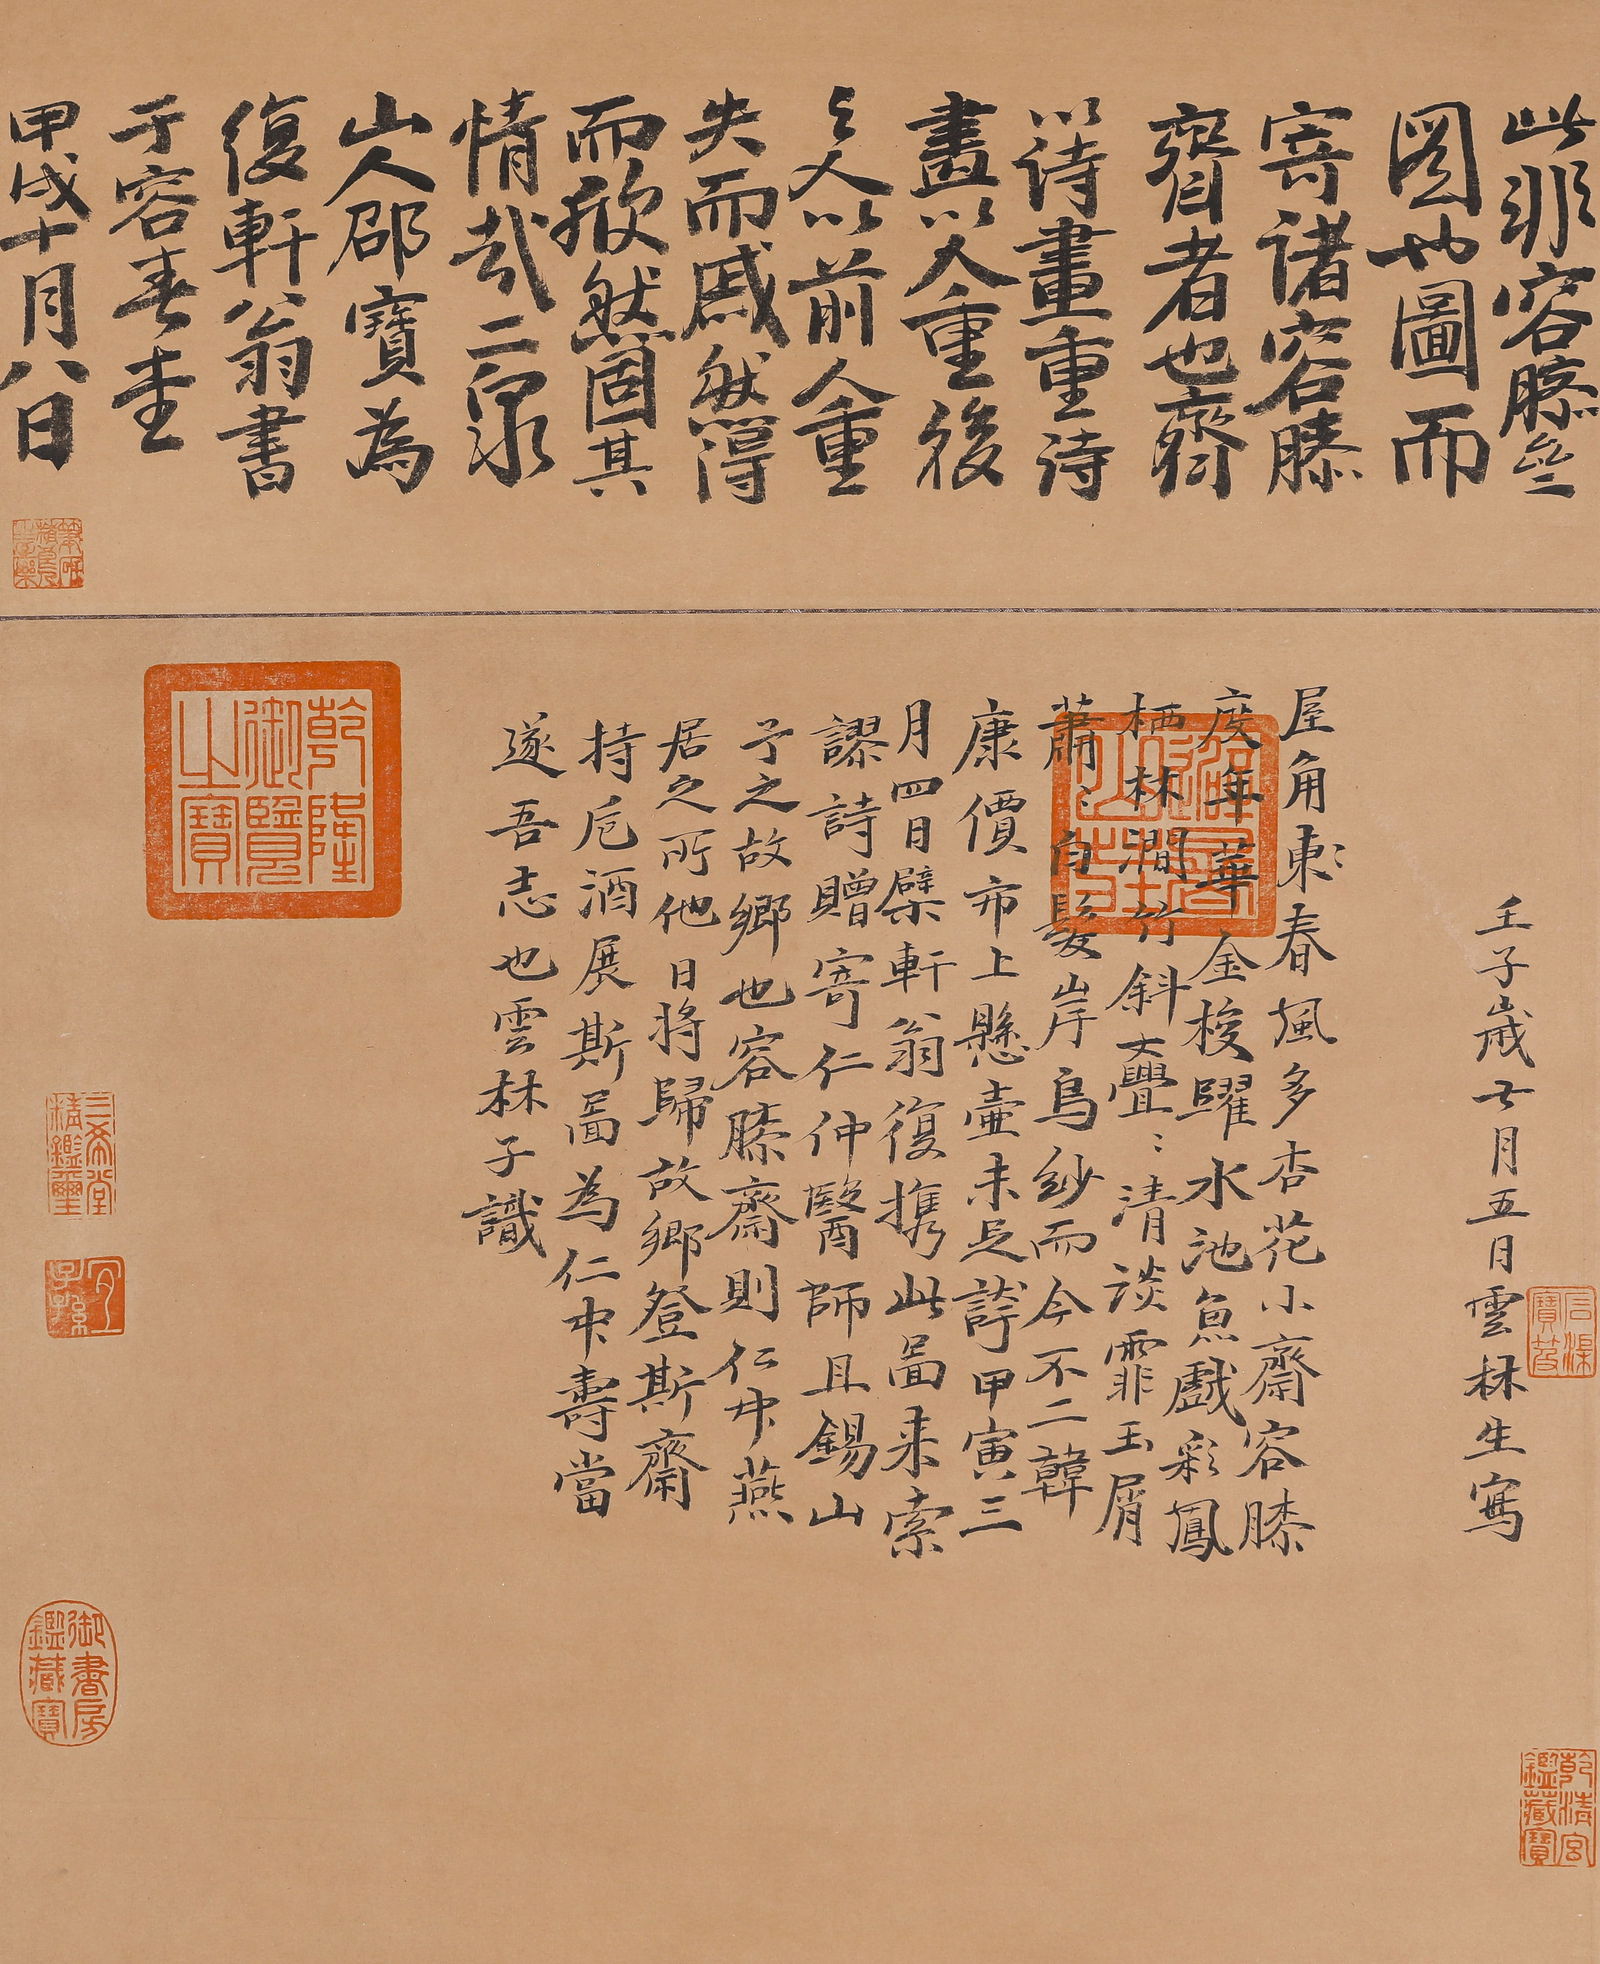 此非容膝齋
圖也圖而
寄諸容膝
齋者也齋
以詩畫重詩
畫以人重後
之人以前人重
失而戚然得
而欣然固其
情哉二泉
山人邵寶為
復軒翁書
于容春堂
甲戌十月八日
壬子歲七月五日雲林生寫
屋角東〻春風多杏花小齋容膝
度年華金梭躍水池魚戲彩鳳
栖林澗竹斜亹〻清談霏玉屑
蕭〻白髮岸烏紗而今不二韓
康價市上懸壺未足誇甲寅三
月四日檗軒翁復携此圖来索
謬詩贈寄仁仲醫師且錫山
予之故鄉也容膝齋則仁中燕
居之所他日將歸故鄉登斯齋
持卮酒展斯啚為仁中壽當
遂吾志也雲林子識
乾隆御覽之寶
三希堂精鑑璽
宜子孫
御書房鑑藏寶
石渠寶笈
乾清宮鑑藏寶